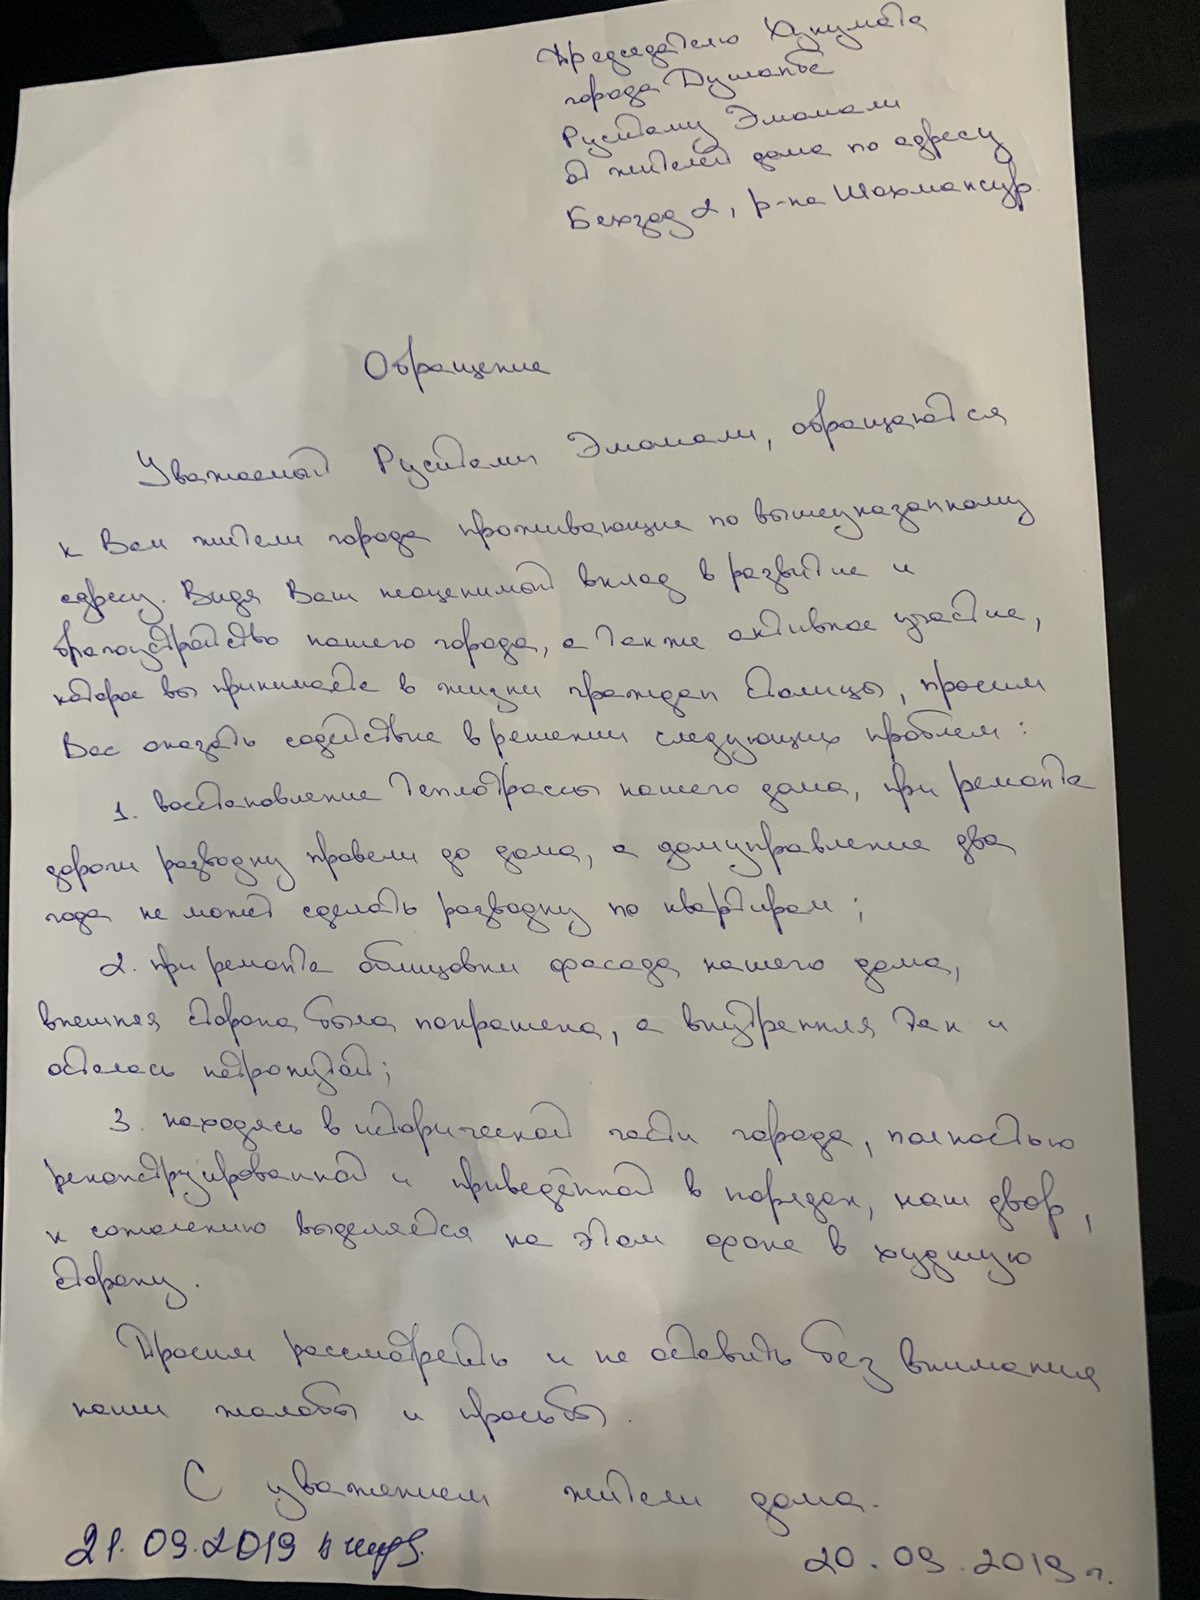 Председателю Хукумата
города Душанбе
Рустаму Эмомали
от жителей дома по адресу
Бехзод 2, р-на Шохмансур.
Обращение
Уважаемый Рустами Эмомали, обращаются
к Вам жители города проживающие по вышеуказанному
адресу. Видя Ваш неоценимый вклад в развитие и
благоустройство нашего города, а также активное участие,
которое вы принимаете в жизни граждан столицы, просим
Вас оказать содействие в решении следующих проблем:
1. восстановление теплотрассы нашего дома, при ремонте
дороги разводку провели до дома, а домуправление два
года не может сделать разводку по квартирам;
2. при ремонте облицовки фасада нашего дома,
внешняя сторона была покрашена, а внутренняя так и
осталась нетронутой;
3. находясь в исторической части города, полностью
реконструированной и приведённой в порядок, наш двор,
к сожалению выделяется на этом фоне в худшую
сторону.
Просим рассмотреть и не оставить без внимания
наши жалобы и просьбы.
С уважением жители дома.
21.09.2019
20.09.2019 г.